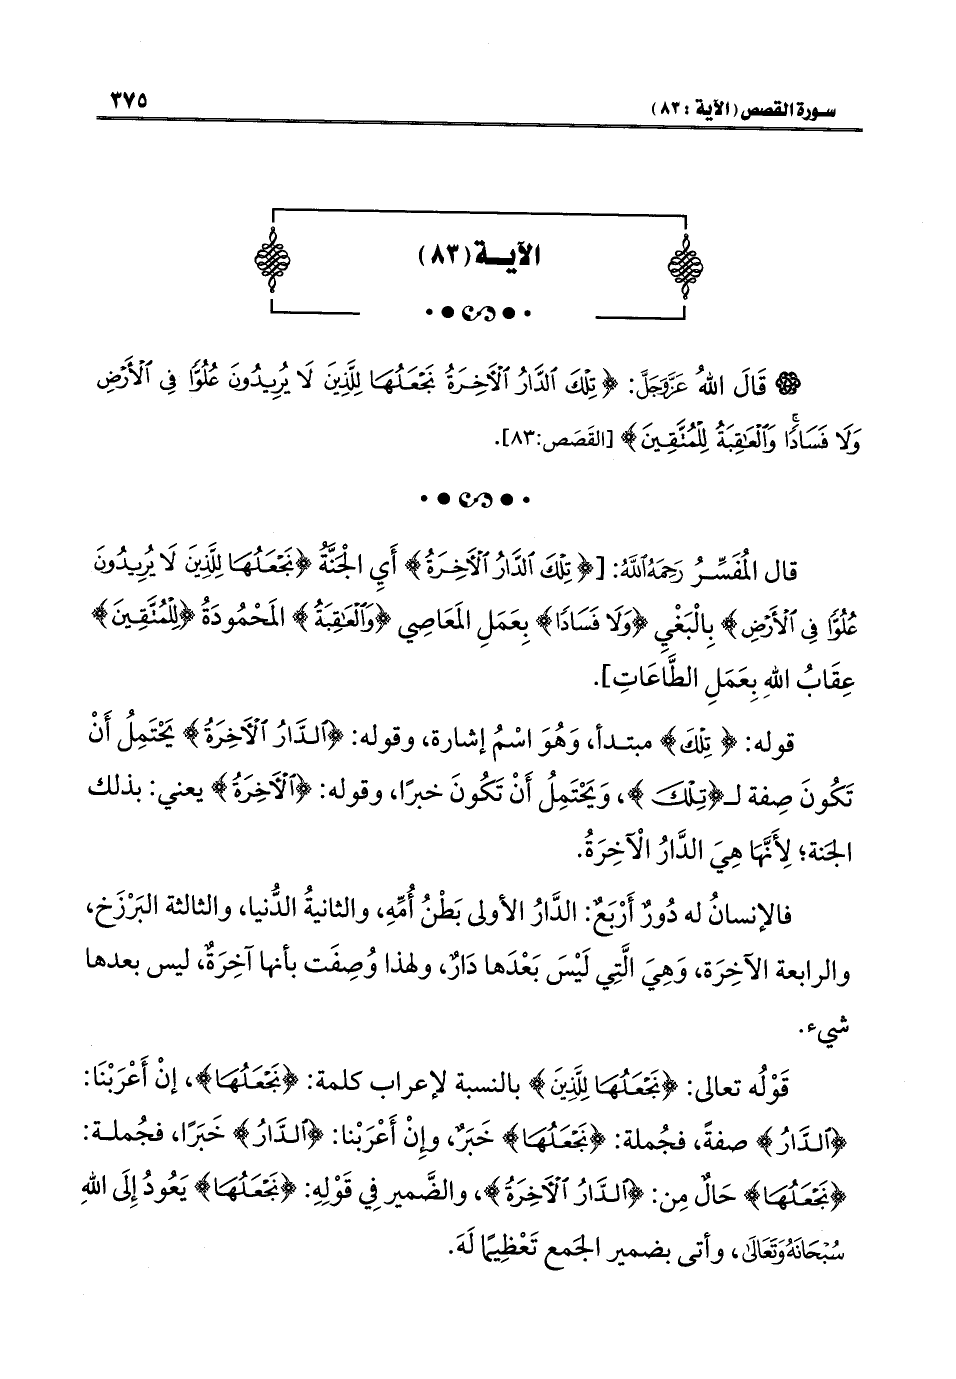 سورة القصص (الآية : ٨٣)
٣٧٥
الآيــة (٨٣)
قَالَ اللهُ عَزَّوَجَلَّ: ﴿ تِلْكَ ٱلدَّارُ ٱلْآخِرَةُ نَجْعَلُهَا لِلَّذِينَ لَا يُرِيدُونَ عُلُوًّا فِي ٱلْأَرْضِ
وَلَا فَسَادًا ۚ وَٱلْعَٰقِبَةُ لِلْمُتَّقِينَ﴾ [القَصَص:٨٣].
قال المُفَسِّرُ رَحِمَهُ ٱللَّهُ: [﴿ تِلْكَ ٱلدَّارُ ٱلْآخِرَةُ﴾ أَيِ الجَنَّةُ ﴿نَجْعَلُهَا لِلَّذِينَ لَا يُرِيدُونَ
عُلُوًّا فِي ٱلْأَرْضِ﴾ بِالْبَغْيِ ﴿وَلَا فَسَادًا﴾ بِعَمَلِ المَعَاصِي ﴿وَٱلْعَٰقِبَةُ﴾ المَحْمُودَةُ ﴿لِلْمُتَّقِينَ﴾
عِقَابُ اللهِ بِعَمَلِ الطَّاعَاتِ].
قوله: ﴿ تِلْكَ﴾ مبتدأ، وَهُوَ اسْمُ إشارة، وقوله: ﴿ٱلدَّارُ ٱلْآخِرَةُ﴾ يَحْتَمِلُ أَنْ
تَكُونَ صِفة لـ﴿تِلْكَ ﴾، وَيَحْتَمِلُ أَنْ تَكُونَ خبرًا، وقوله: ﴿ٱلْآخِرَةُ﴾ يعني: بذلك
الجَنة؛ لِأَنَّهَا هِيَ الدَّارُ الْآخِرَةُ.
فالإنسانُ له دُورٌ أَرْبَعٌ: الدَّارُ الأولى بَطْنُ أُمِّهِ، والثانيةُ الدُّنيا، والثالثة البَرْزَخ،
والرابعة الآخِرَة، وَهِيَ الَّتِي لَيْسَ بَعْدَها دَارٌ، ولهذا وُصِفَت بأنها آخِرَةٌ، ليس بعدها
شيء.
قَوْلُه تعالى: ﴿نَجْعَلُهَا لِلَّذِينَ﴾ بالنسبة لإعراب كلمة: ﴿نَجْعَلُهَا﴾، إنْ أَعْرَبْنَا:
﴿ٱلدَّارُ﴾ صفةً، فجُملة: ﴿نَجْعَلُهَا﴾ خَبَرٌ، وإنْ أَعْرَبْنا: ﴿ٱلدَّارُ﴾ خَبَرًا، فجُملـة:
﴿نَجْعَلُهَا﴾ حَالٌ مِن: ﴿ٱلدَّارُ ٱلْآخِرَةُ﴾، والضَّمير فِي قَوْلِهِ: ﴿نَجْعَلُهَا﴾ يَعُودُ إِلَى اللهِ
سُبْحَانَهُ وَتَعَالَى، وأتى بضمير الجَمع تَعْظِيمًا لَهَ.